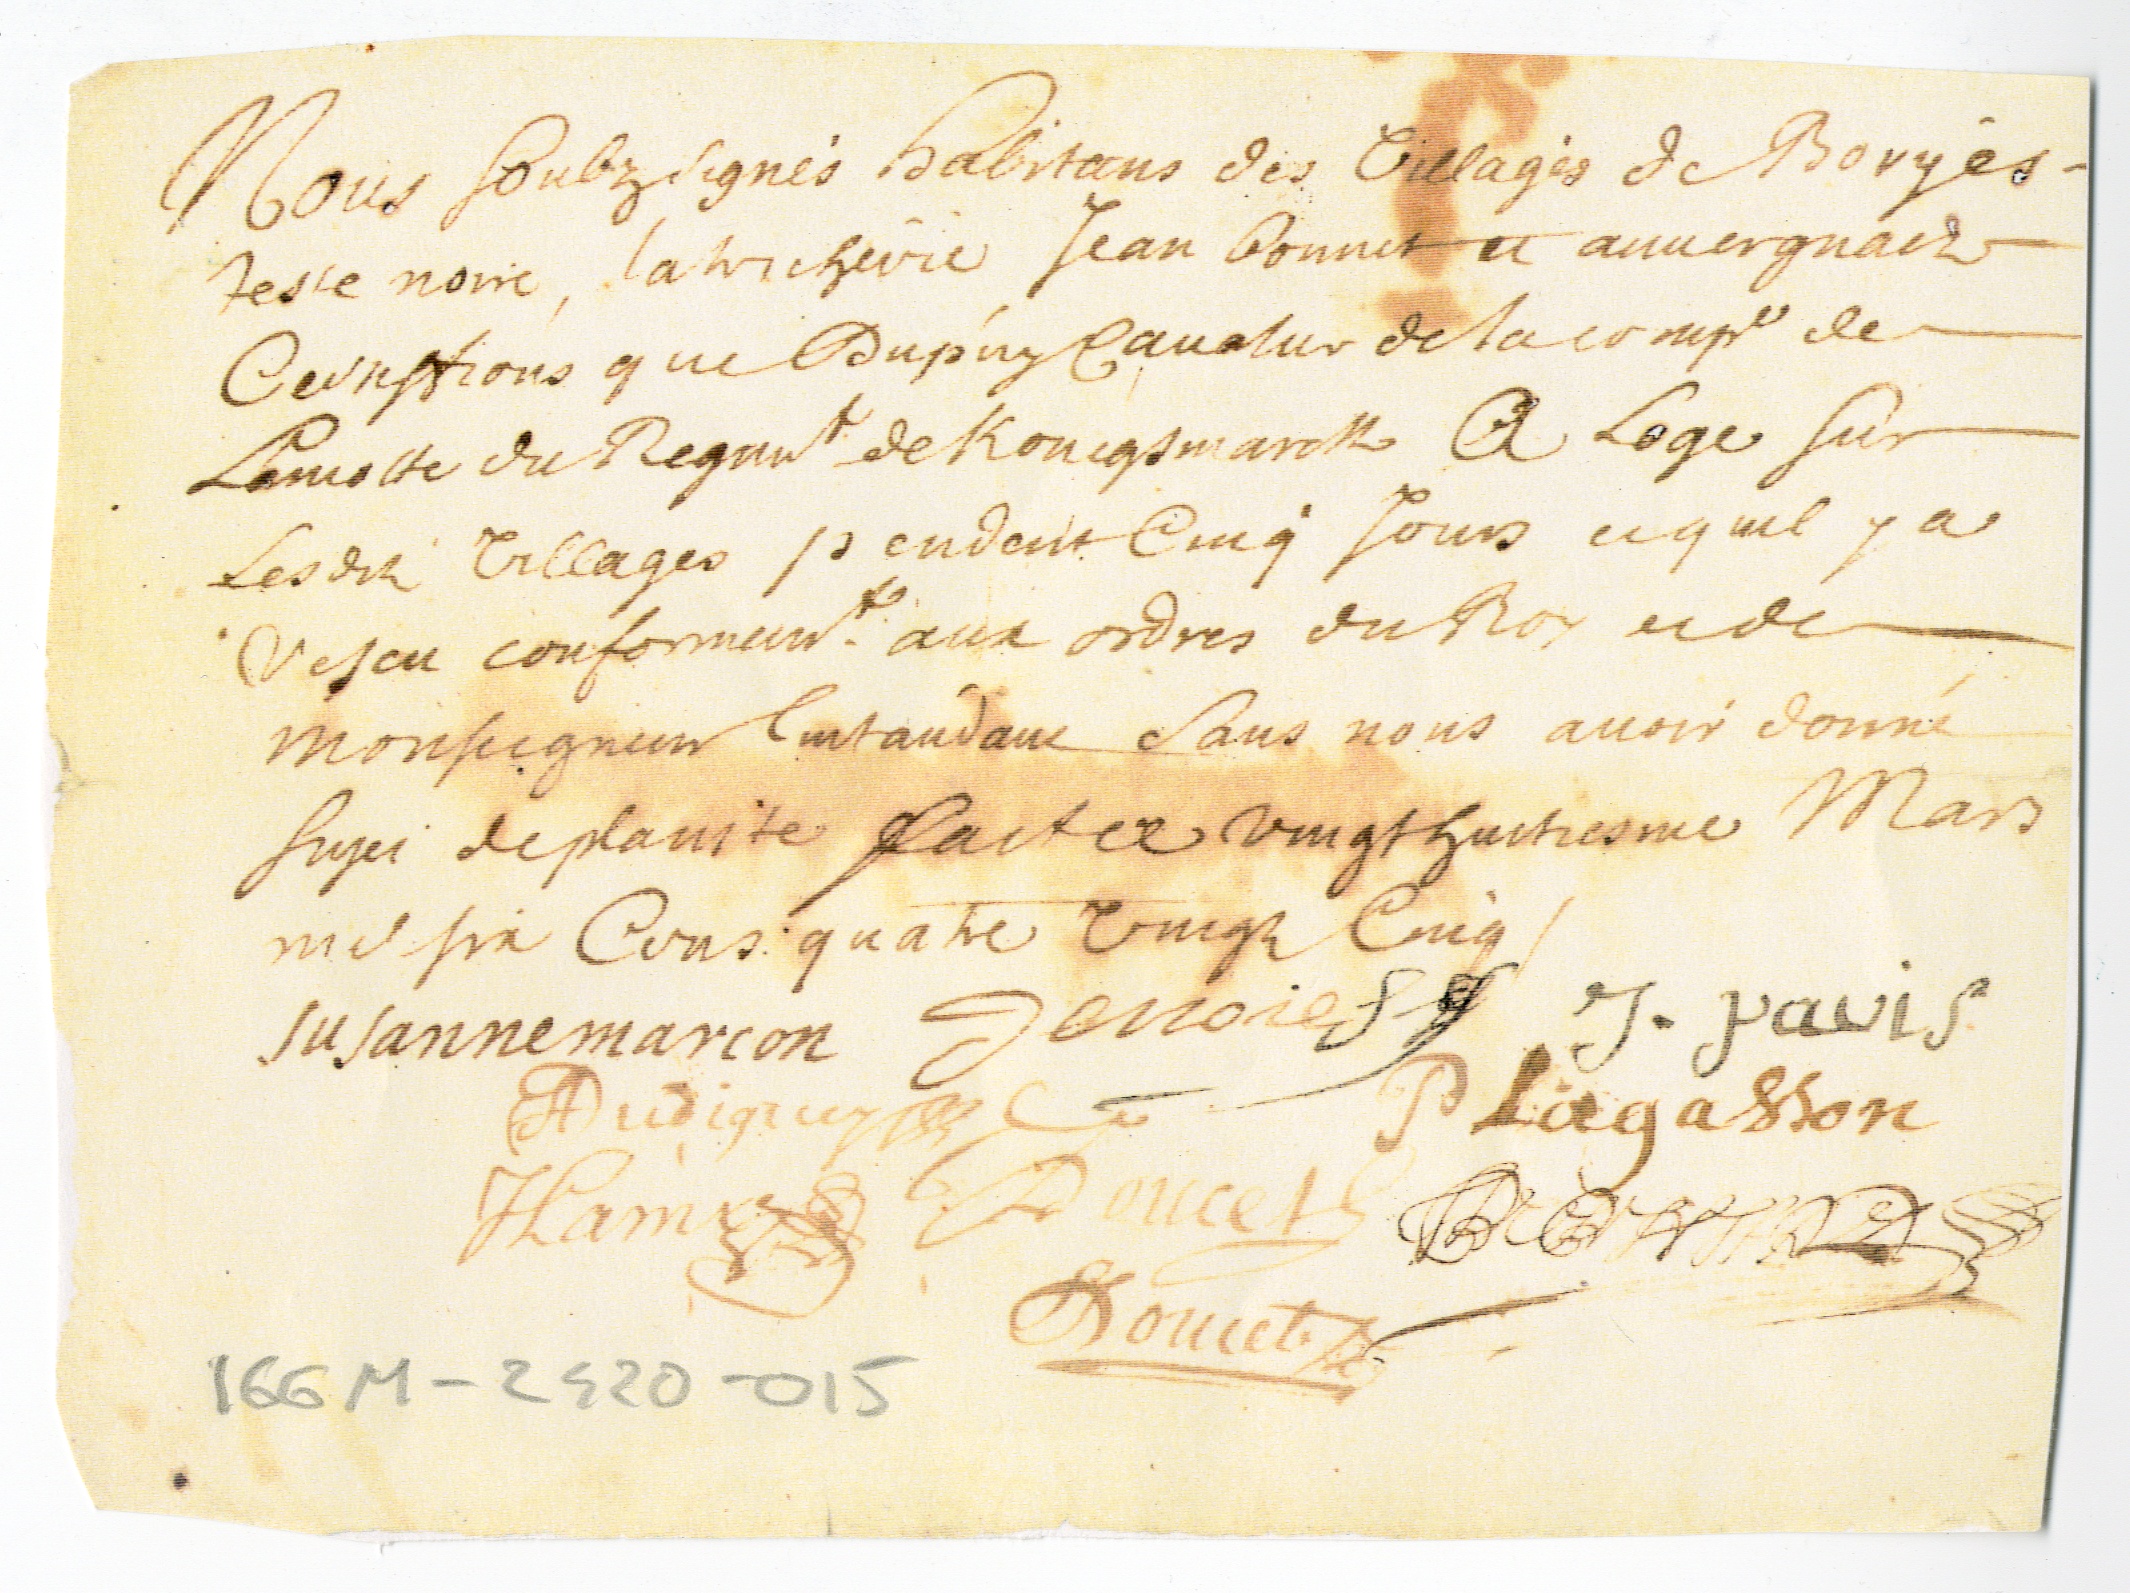 Nous soubzsignés habitans des Villages de Boryes -
teste noire, latricherie Jean bonnet et auuergnacz
Certiffions que Dupuy Caualier de la comp.e de
Lamotte du Regim.t de Konigsmarck A Logé sur
Lesditz Villages pendant Cinq Jours et quil y a
Vescu conformem.t aux ordres du Roy et de
monseigneur lintandant sans nous auoir donné
sujet de plainte faict ce vingthuictiesme Mars
mil six Cens quatre vingtz Cinq /
susanne marcon J. pauis
Audiguy P Lagasson
Doucet
Doucet
166M-2420-015